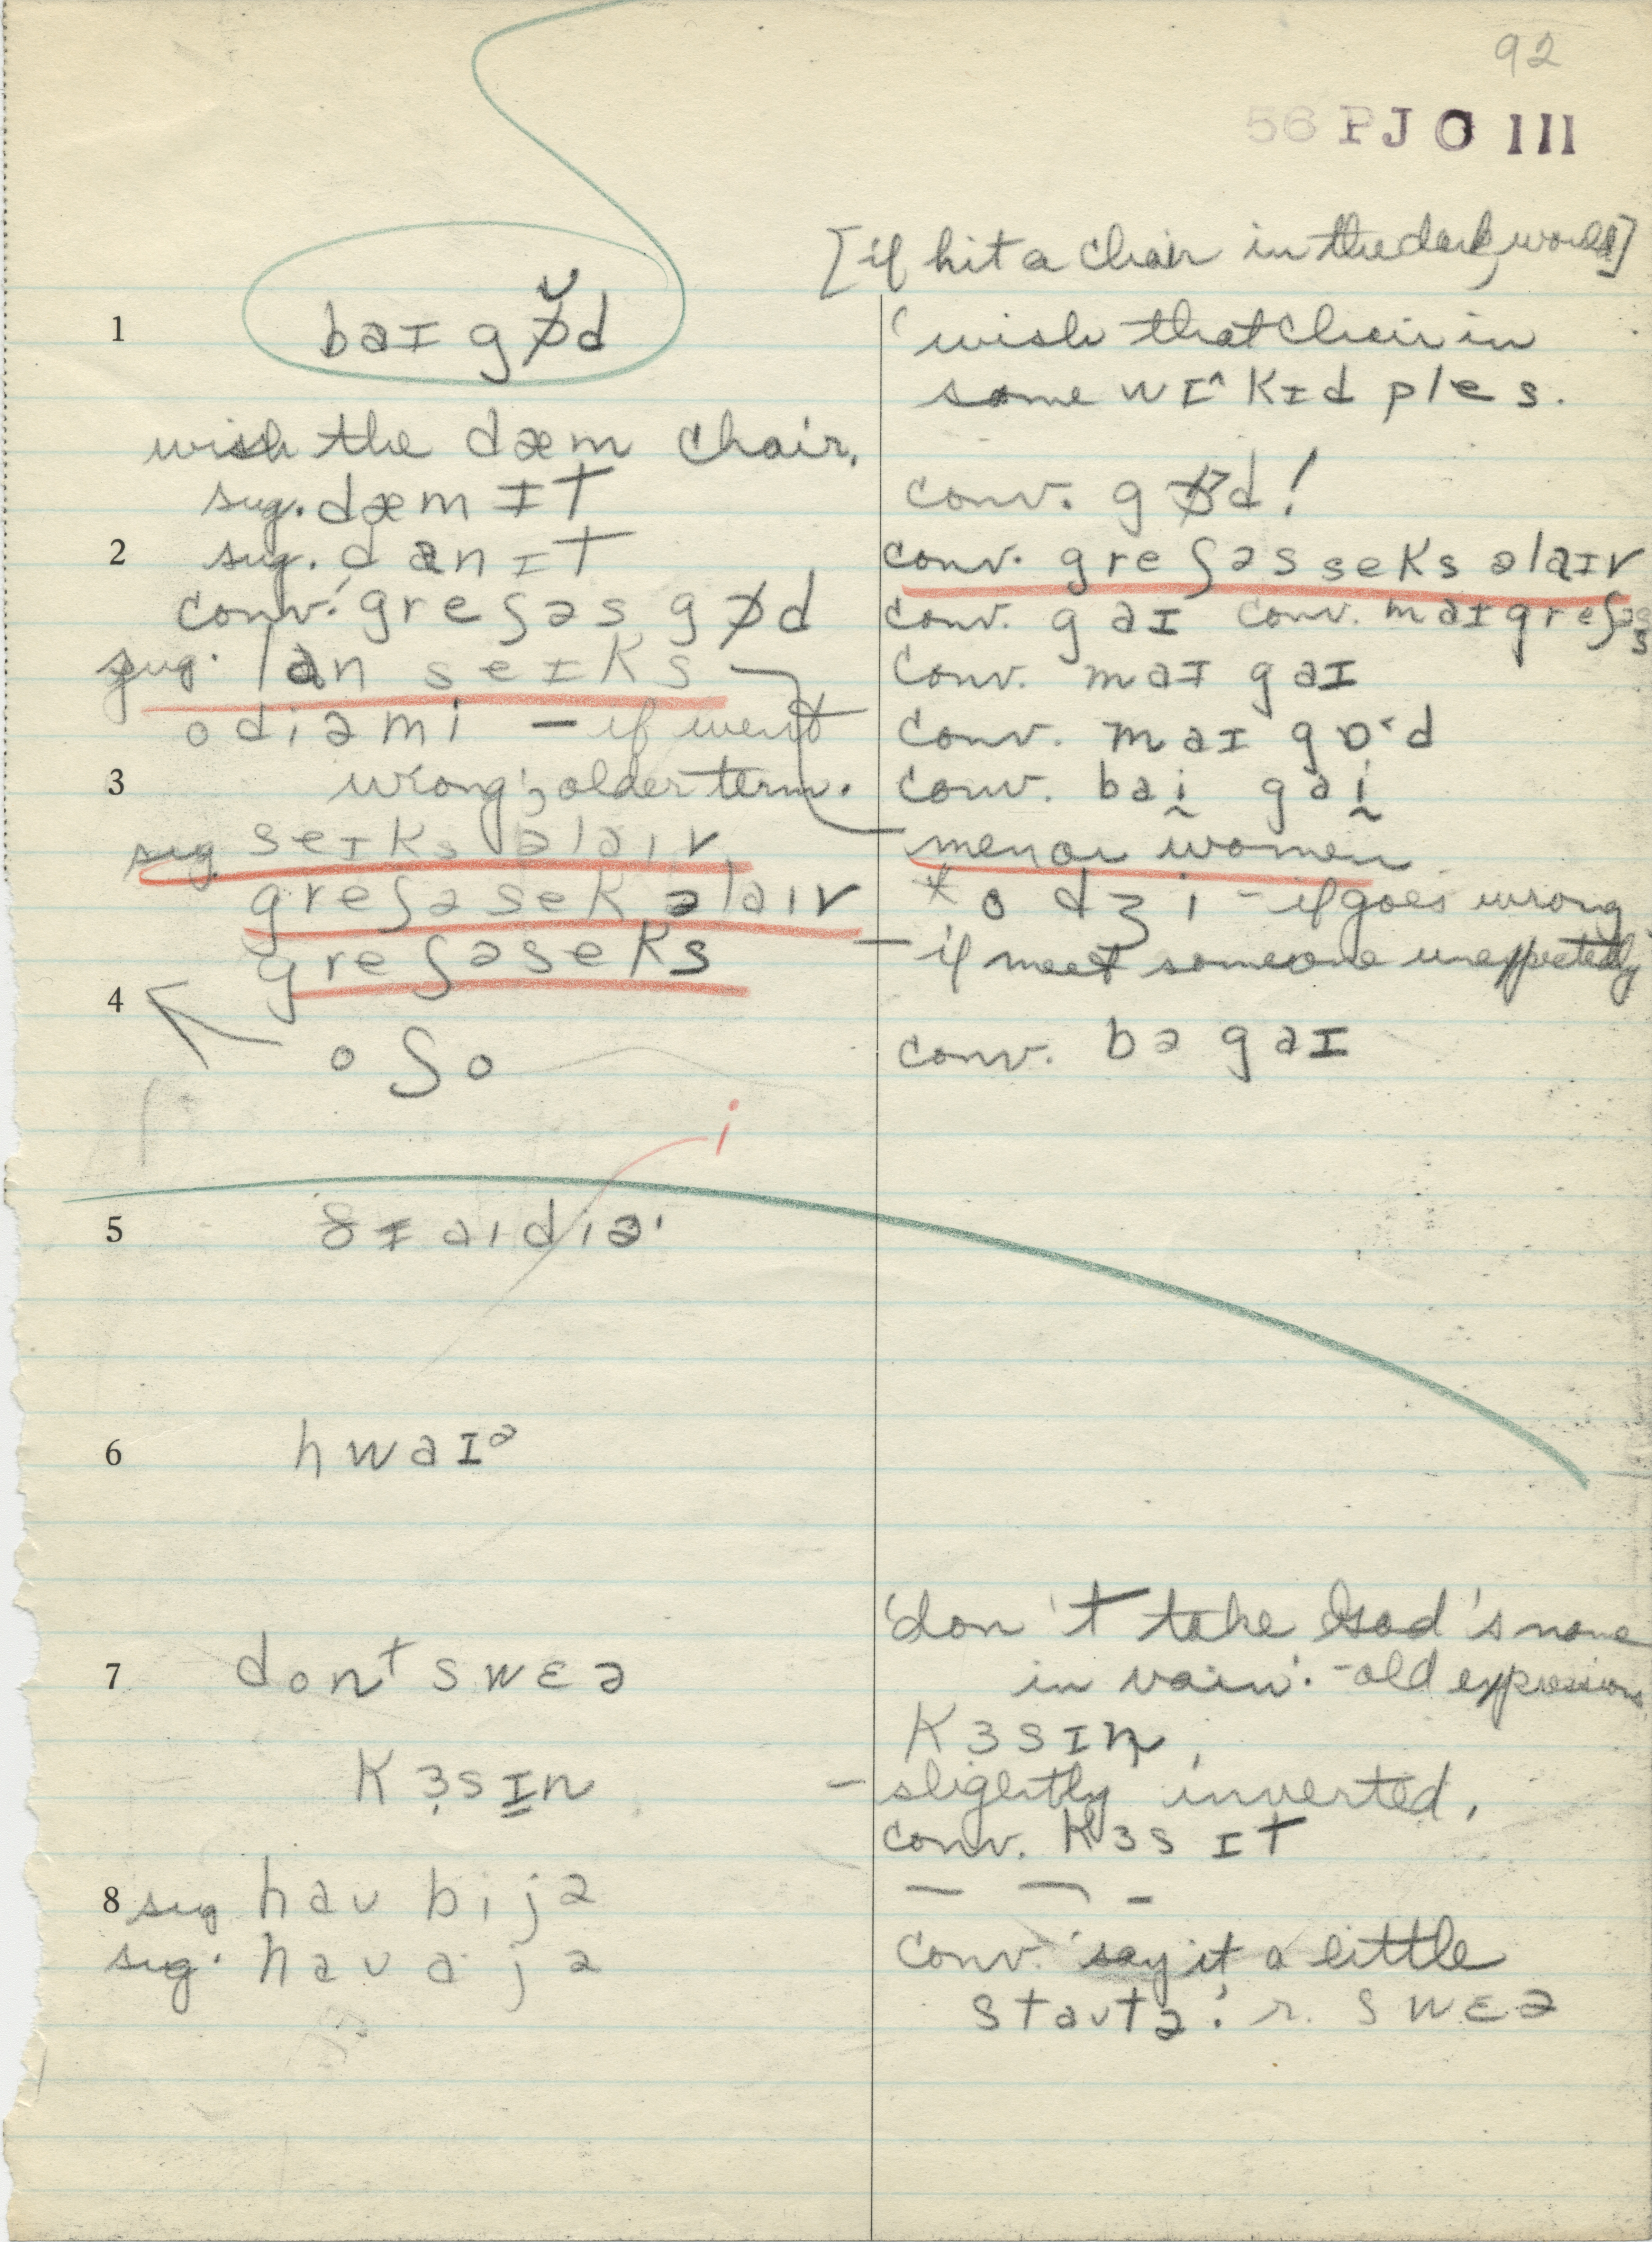 92
56 PJO III
[if hit a chair in the dark, would]
1 baɪ gɒ̸̆d
'wish that chair in
some wɪ^kɪd ples.
wish the dæm chair.
sug. dæm ɪt
conv. gɒ̸d!
2 sug. danɪt
conv. greʃəs seks əlaɪv
conv. greʃəs gɒ̸d
conv. gaɪ conv. maɪ greʃəs
sug. lan seɪks
conv. maɪ gaɪ
odiəmi — if went
conv. maɪ gɒ·d
3 wrong; older term.
conv. bai̯ gai̯
sug seɪks əlaiv
men or women
greʃəsek əlaiv
* o dʒi - if goes wrong
greʃəseks
— if meet someone unexpectedly
4
oʃo
conv. bə gaɪ
i
5 ðɪ aidiə'
6 hwaɪᵊ
7 dont swɛə
'don't take God's name
in vain'. - old expression
kɜsɪn
kɜ̣sɪ̲n
— slightly inverted.
conv. kɜs ɪt
8 sug hav bijə
— — -
sug. havəjə
conv. 'say it a little
stavtə'. r. swɛə